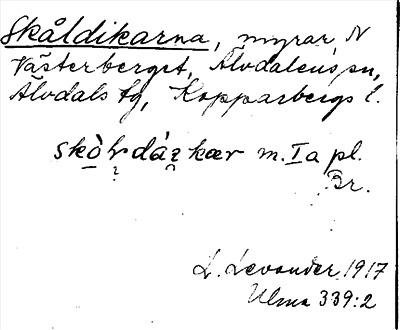 Skåldikarna, myrar N
Västerberget, Älvdalens sn,
Älvdals tg, Kopparbergs l.
m. Ia pl.
Br.
L. Levander 1917
Ulma 339:2